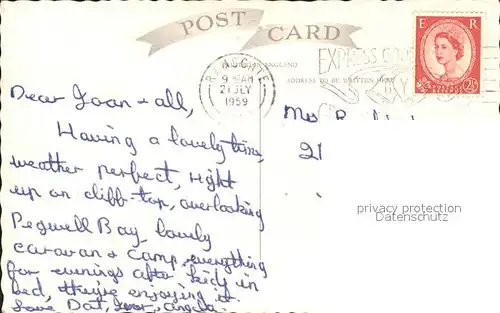 POST CARD
ENGLAND
ADDRESS TO BE WRITTEN HERE
RAMSGATE
9 15 AM
21 JLY
1959
EXPRESS
BY
E R
2½D
Dear Joan & all,
Having a lovely time,
weather perfect, right
up on cliff-top, overlooking
Pegwell Bay, lovely
caravan & camp, everything
for evenings after kids in
bed, they're enjoying it.
Love Dot, Angela
Mrs
21
privacy protection
Datenschutz